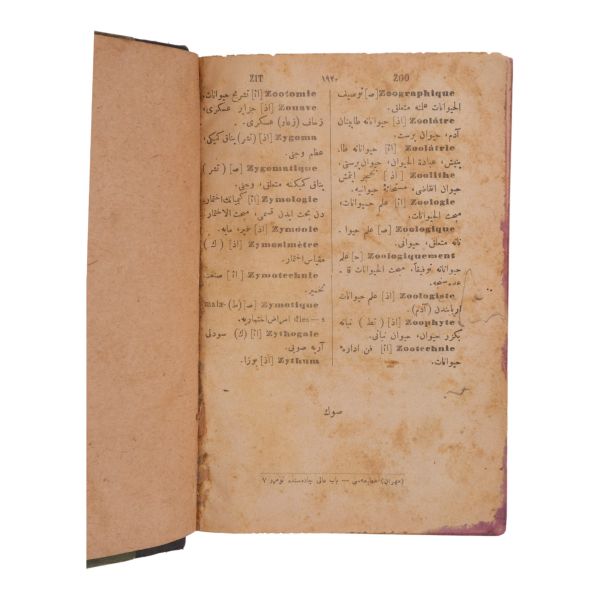 ZIT ١٩٢٠ ZOO
Zoographique [ص] توصيف
الحيوانات علمنه متعلق.
Zoolâtre [اذ] حيوانه طاپينان
آدم، حيوان پرست.
Zoolâtrie [اث] حيوانه طا-
پينش، عبادة الحيوان، حيوان پرستى.
Zoolithe [اذ] تحجر ايتمش
حيوان انقاضى، مستحاثهٔ حيوانيه.
Zoologie [اث] علم حيوانات،
مبحث الحيوانات.
Zoologique [ص] علم حيوا-
ناته متعلق، حيوانى.
Zoologiquement [ح] علم
حيواناته توفيقاً، مبحث الحيوانات قا-
عده سنجه.
Zoologiste [اذ] علم حيوانات
اربابندن (آدم).
Zoophyte [اذ] (نط) نباته
بكزر حيوان، حيوان نباتى.
Zootechnie [اث] فن ادارهٔ
حيوانات.
Zootomie [اث] تشريح حيوانات.
Zouave [اذ] جزاير عسكرى،
زواف (زواو) عسكرى.
Zygoma [اذ] (تشر) يناق كميكى،
عظم وجنى.
Zygomatique [ص] (تشر)
يناق كميكنه متعلق، وجنى.
Zymologie [اث] كيميانك اختمار-
دن بحث ايدن قسمى، مبحث الاختمار.
Zymoole [اذ] خميره، مايه.
Zymosimètre [اذ] (ك)
مقياس اختمار.
Zymotechnie [اث] صنعت
تخمير.
Zymotique [ص] (ط) mala-
dies — s امراض اختماريه.
Zythogale [اث] (ك) سودلى
آرپه صويى.
Zythum [اذ] بوزا.
صوك
(مهران) مطبعه سى — باب عالى جاده سنده نومرو ٧